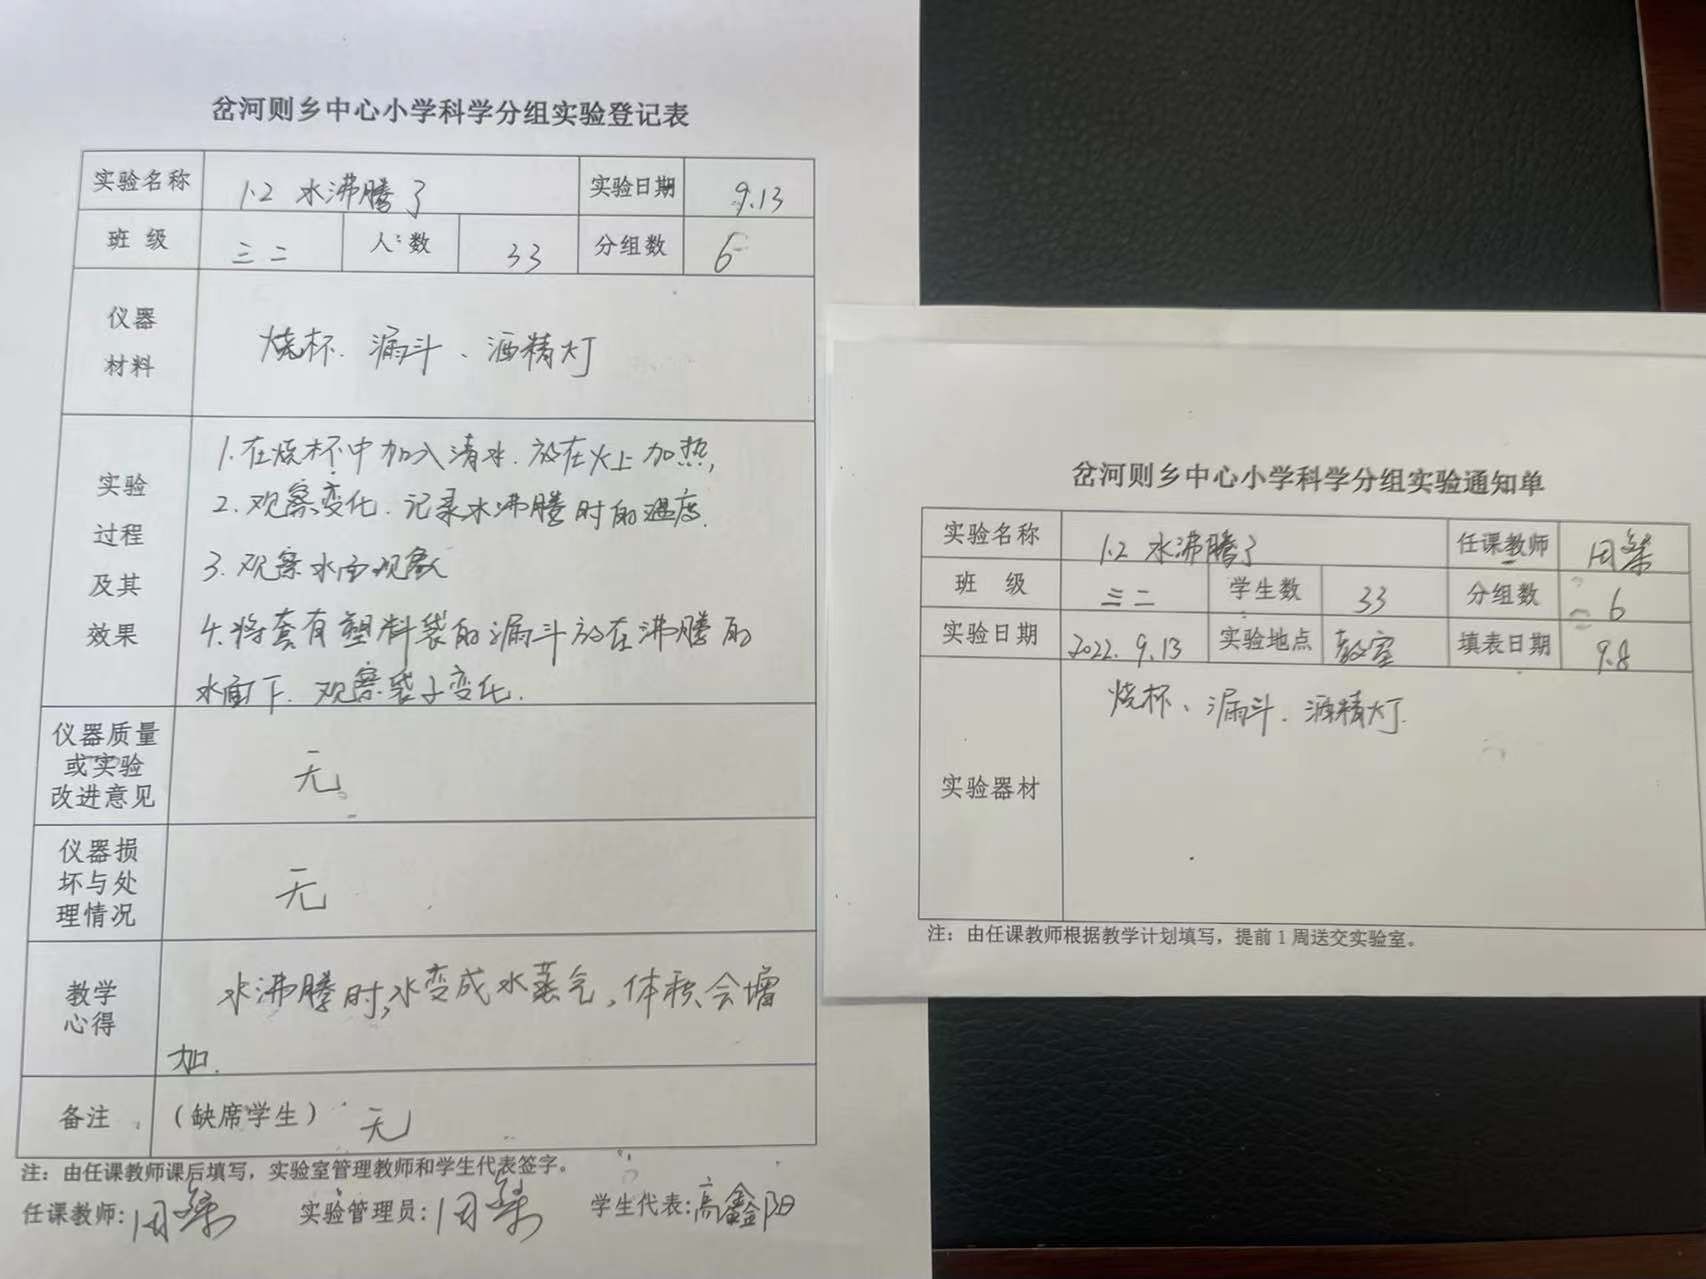 岔河则乡中心小学科学分组实验登记表
实验名称 1.2 水沸腾了 实验日期 9.13
班 级 三二 人:数 33 分组数 6
仪器
材料
烧杯、漏斗、酒精灯
实验
过程
及其
效果
1.在烧杯中加入清水.放在火上加热,
2.观察变化.记录水沸腾时的温度.
3.观察水面现象
4.将套有塑料袋的漏斗放在沸腾的
水面下.观察袋子变化.
仪器质量
或实验
改进意见
无
仪器损
坏与处
理情况
无
教学
心得
水沸腾时,水变成水蒸气,体积会增
加.
备注 (缺席学生) 无
注:由任课教师课后填写,实验室管理教师和学生代表签字。
任课教师: 实验管理员: 学生代表:高鑫阳
岔河则乡中心小学科学分组实验通知单
实验名称 1.2 水沸腾了 任课教师
班 级 三二 学生数 33 分组数 6
实验日期 2022.9.13 实验地点 教室 填表日期 9.8
实验器材
烧杯、漏斗.酒精灯.
注:由任课教师根据教学计划填写,提前1周送交实验室。